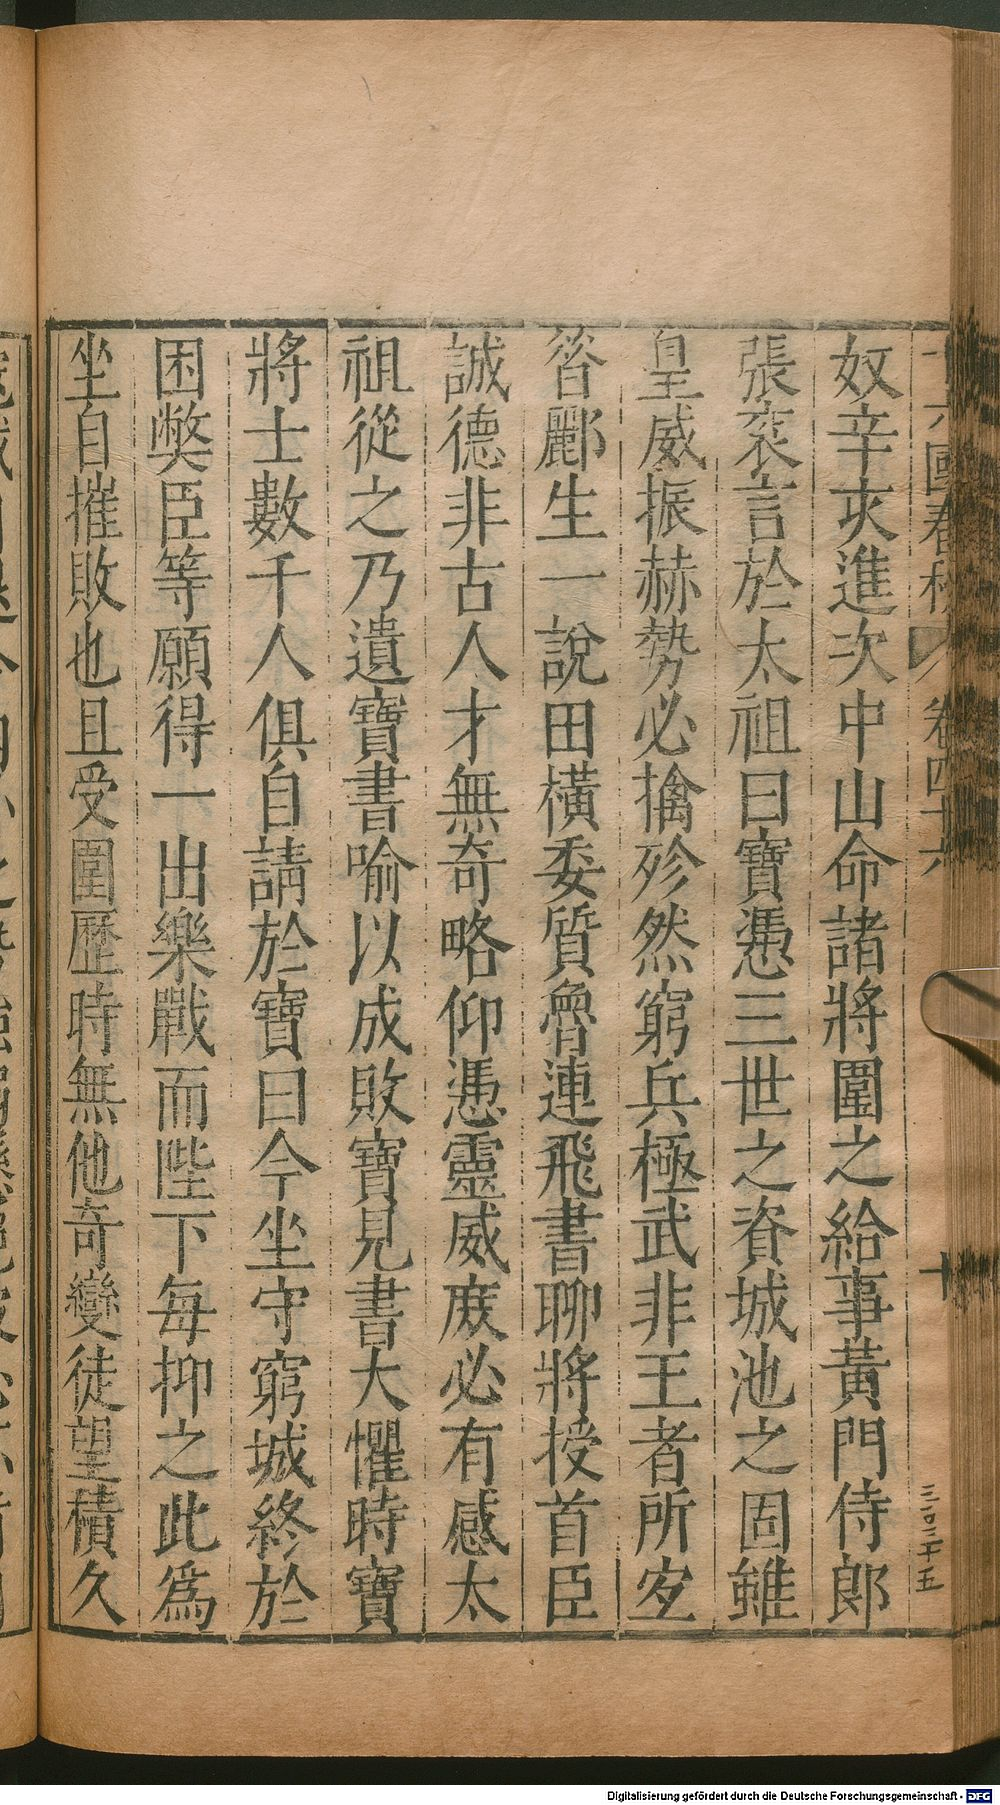 十六國春秋 卷四十六 十
三〇三五五
奴辛亥進次中山命諸將圍之給事黃門侍郎
張衮言於太祖曰寶憑三世之資城池之固雖
皇威振赫勢必擒殄然窮兵極武非王者所宜
昝酈生一說田橫委質魯連飛書聊將授首臣
誠德非古人才無奇略仰憑靈威庶必有感太
祖從之乃遺寶書喻以成敗寶見書大懼時寶
將士數千人俱自請於寶曰今坐守窮城終於
困獘臣等願得一出樂戰而陛下每抑之此爲
坐自摧敗也且受圍歷時無他奇變徒望積久
Digitalisierung gefördert durch die Deutsche Forschungsgemeinschaft - DFG